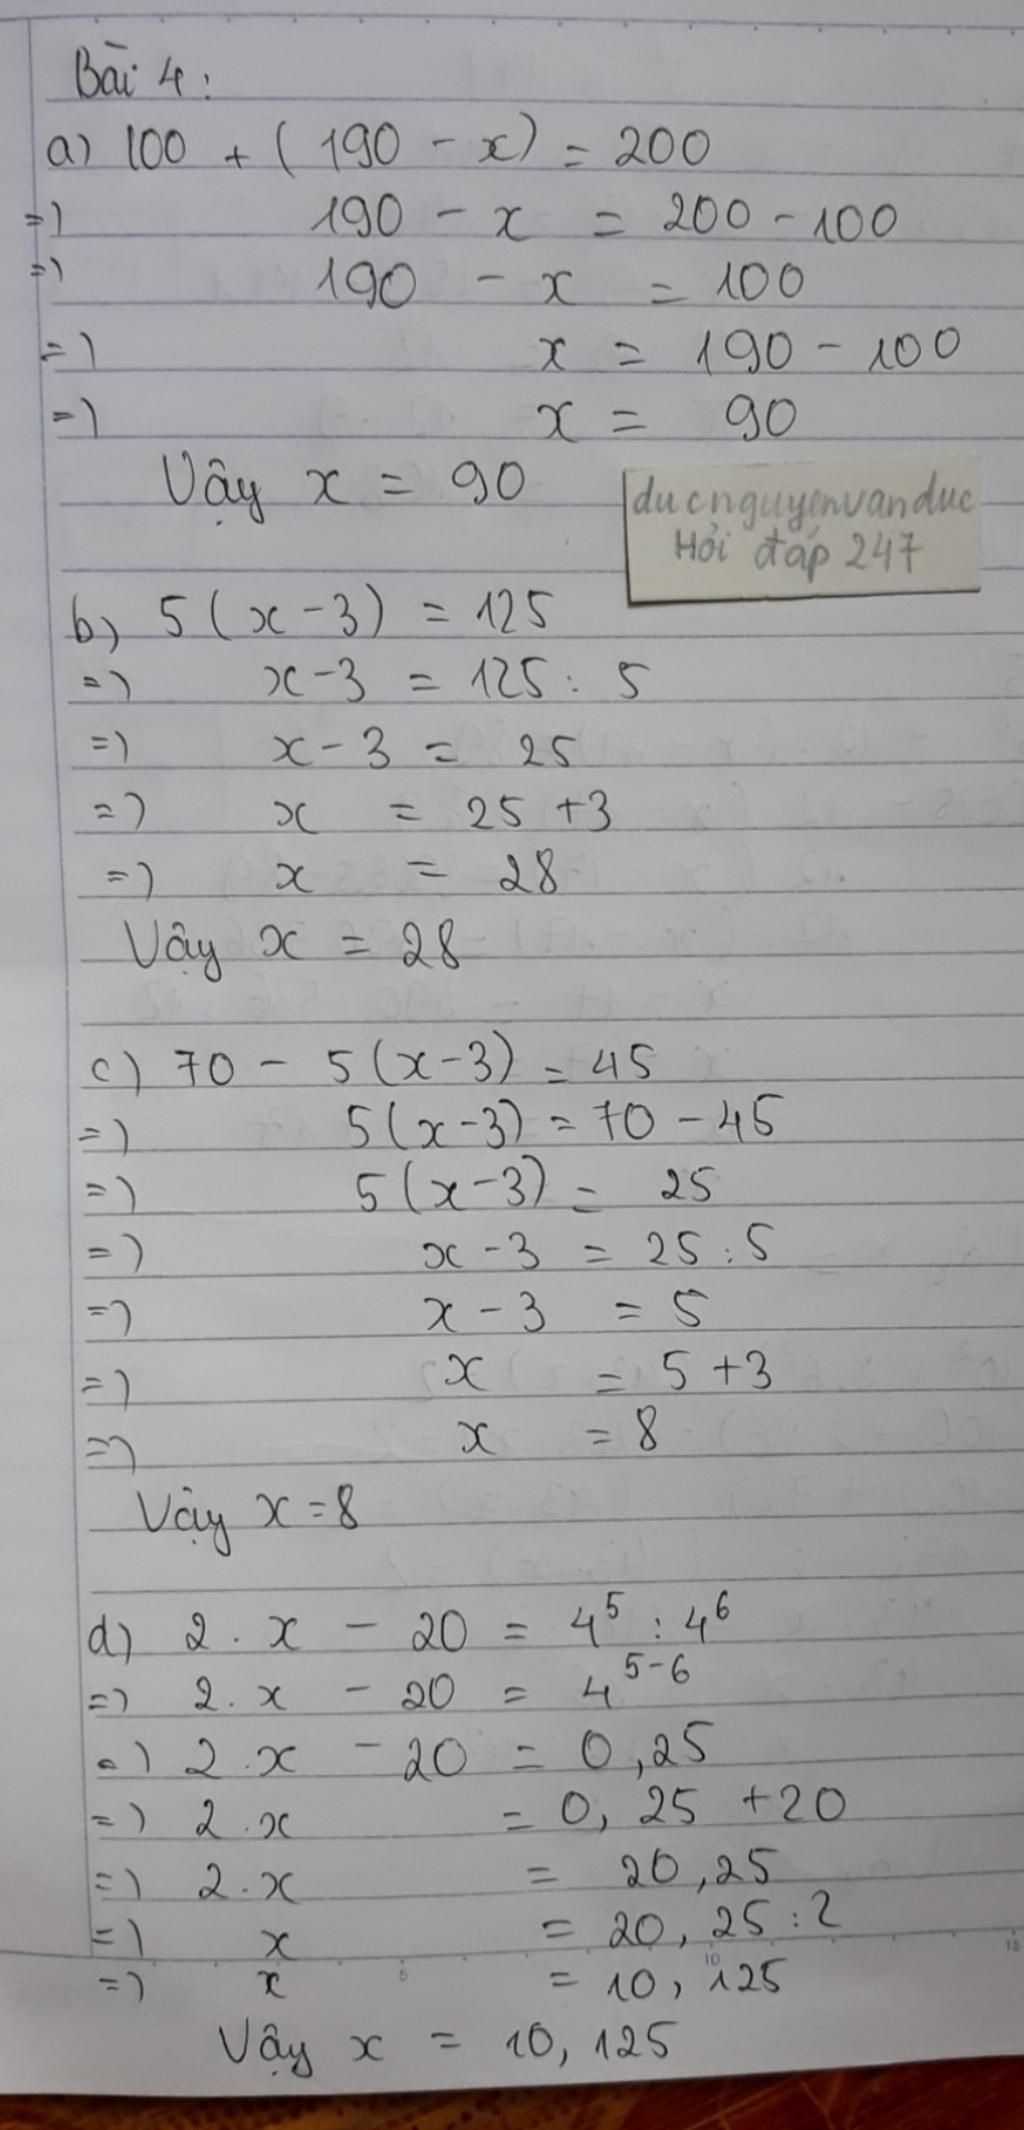 Bài 4:
a) 100 + ( 190 - x ) = 200
=) 190 - x = 200 - 100
=) 190 - x = 100
=) x = 190 - 100
=) x = 90
Vậy x = 90
ducnguyenvanduc
Hỏi đáp 247
b) 5 ( x - 3 ) = 125
=) x - 3 = 125 : 5
=) x - 3 = 25
=) x = 25 + 3
=) x = 28
Vậy x = 28
c) 70 - 5 ( x - 3 ) = 45
=) 5 ( x - 3 ) = 70 - 45
=) 5 ( x - 3 ) = 25
=) x - 3 = 25 : 5
=) x - 3 = 5
=) x = 5 + 3
=) x = 8
Vậy x = 8
d) 2 . x - 20 = 4⁵ : 4⁶
=) 2 . x - 20 = 4⁵⁻⁶
=) 2 . x - 20 = 0,25
=) 2 . x = 0,25 + 20
=) 2 . x = 20,25
=) x = 20,25 : 2
=) x = 10,125
Vậy x = 10,125